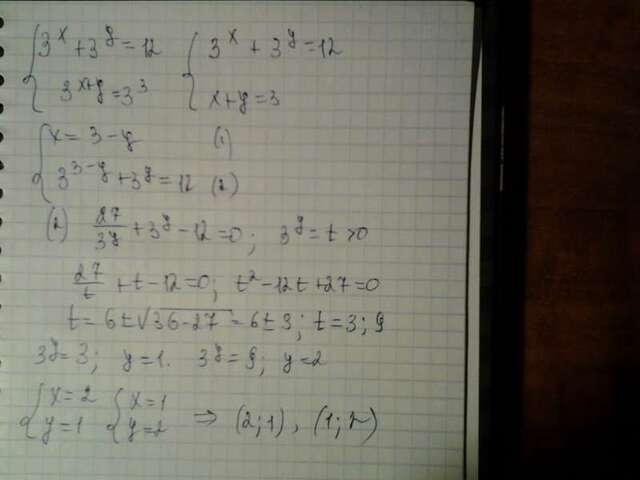 {3^x + 3^y = 12 {3^x + 3^y = 12
3^{x+y} = 3^3 x+y = 3
{x = 3 - y (1)
3^{3-y} + 3^y = 12 (2)
(2) 27/3^y + 3^y - 12 = 0; 3^y = t > 0
27/t + t - 12 = 0; t^2 - 12t + 27 = 0
t = 6 ± √36 - 27 = 6 ± 3; t = 3; 9
3^y = 3; y = 1. 3^y = 9; y = 2
{x = 2 {x = 1
y = 1 y = 2 ⇒ (2; 1), (1; 2)